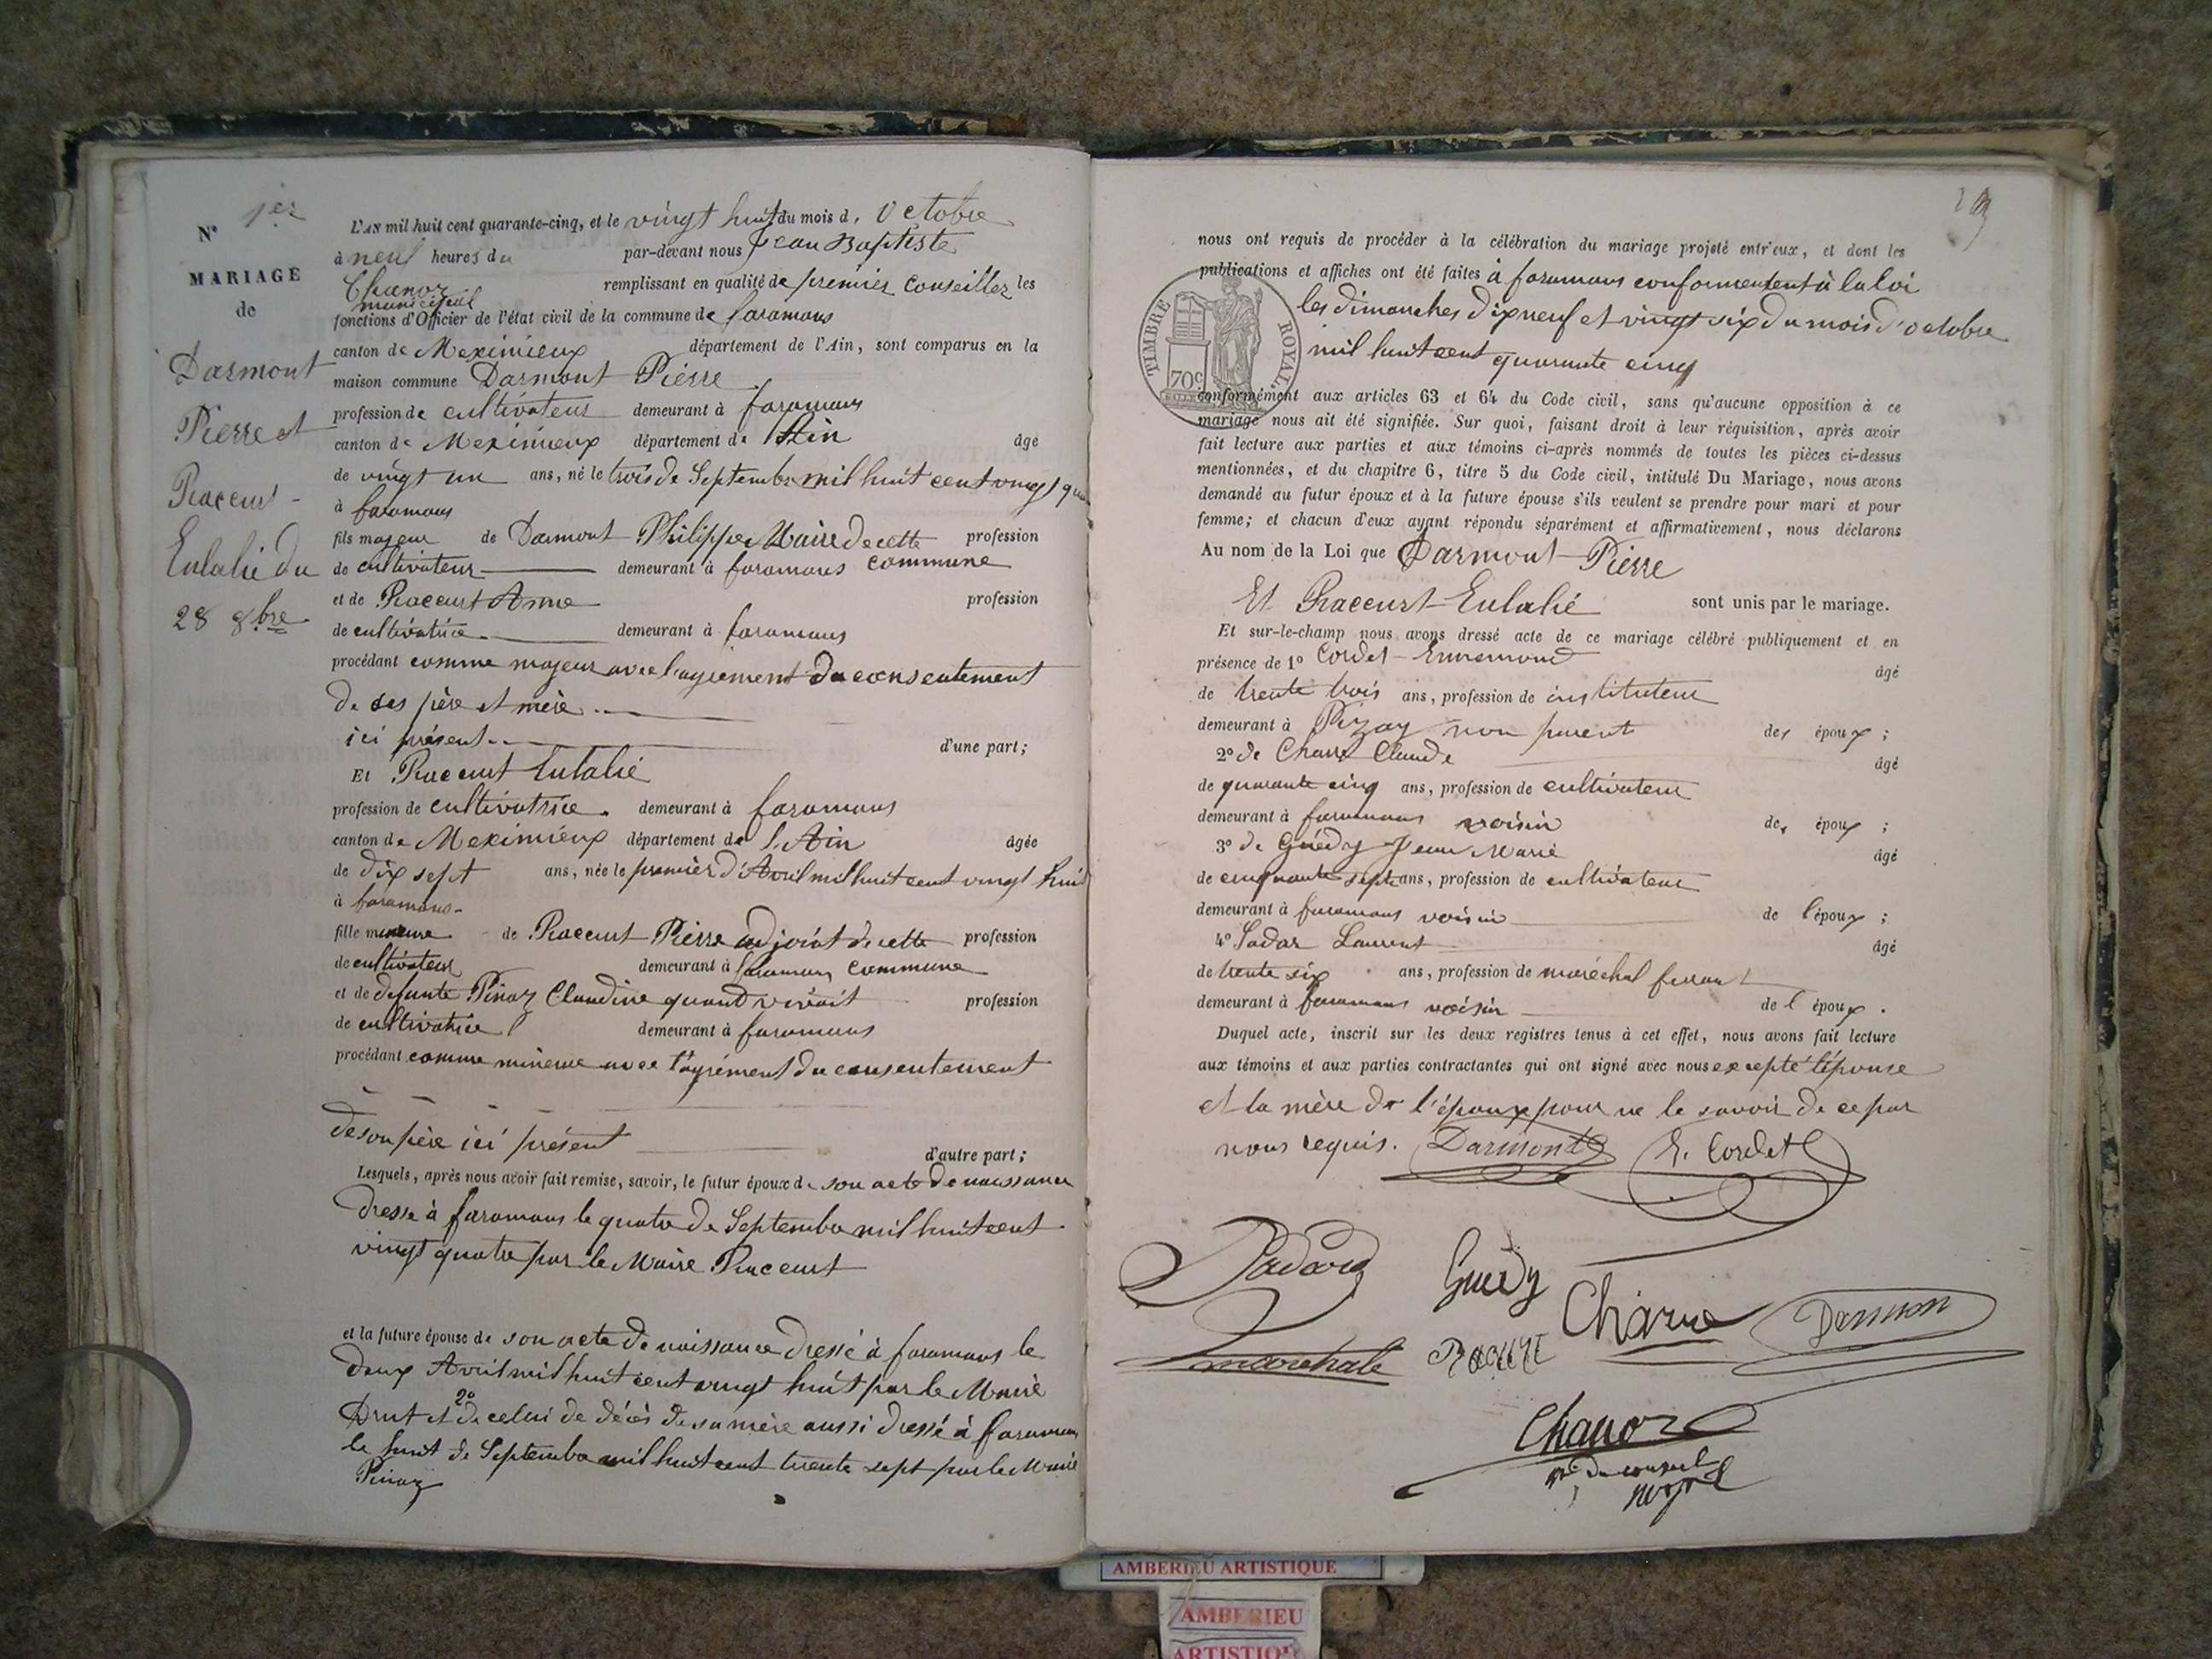 N° 1er
MARIAGE
de
Darmont
Pierre et
Raccurt
Eulalie du
28 8bre
L'AN mil huit cent quarante-cinq, et le vingt huit du mois d. Octobre
à neuf heures du par-devant nous Jean Baptiste
Chanoz remplissant en qualité de premier Conseiller les
municipal
fonctions d'Officier de l'état civil de la commune de faramans
canton de Meximieux département de l'Ain, sont comparus en la
maison commune Darmont Pierre
profession de cultivateur demeurant à faramans
canton de Meximieux département de l'Ain âgé
de vingt un ans, né le trois de Septembre mil huit cent vingt
à faramans
fils majeur de Darmont Philippe Maire de cette profession
de cultivateur demeurant à faramans commune
et de Raccurt Anne profession
de cultivatrice demeurant à faramans
procédant comme majeur avec l'agrément du consentement
de ses père et mère
ici présent d'une part;
Et Raccurt Eulalie
profession de cultivatrice demeurant à faramans
canton de Meximieux département de l'Ain âgée
de dix sept ans, née le premier d'Avril mil huit cent vingt huit
à faramans
fille mineure de Raccurt Pierre adjoint de cette profession
de cultivateur demeurant à faramans commune
et de defunte Pinoz Claudine quand vivait profession
de cultivatrice demeurant à faramans
procédant comme mineure avec l'agrément du consentement
de son père ici présent d'autre part;
Lesquels, après nous avoir fait remise, savoir, le futur époux de son acte de naissance
dresse à faramans le quatre de Septembre mil huit cent
vingt quatre par le Maire Raccurt
et la future épouse de son acte de naissance dressé à faramans le
deux Avril mil huit cent vingt huit par le Maire
Drut et 2° de celui de décès de sa mère aussi dressé à faramans
le huit de Septembre mil huit cent trente sept par le Maire
Pinoz
nous ont requis de procéder à la célébration du mariage projeté entr'eux, et dont les
publications et affiches ont été faites à faramans conformement à la loi
les dimanches dix neuf et vingt six du mois d'octobre
mil huit cent quarante cinq
TIMBRE ROYAL
70c
conformément aux articles 63 et 64 du Code civil, sans qu'aucune opposition à ce
mariage nous ait été signifiée. Sur quoi, faisant droit à leur réquisition, après avoir
fait lecture aux parties et aux témoins ci-après nommés de toutes les pièces ci-dessus
mentionnées, et du chapitre 6, titre 5 du Code civil, intitulé Du Mariage, nous avons
demandé au futur époux et à la future épouse s'ils veulent se prendre pour mari et pour
femme; et chacun d'eux ayant répondu séparément et affirmativement, nous déclarons
Au nom de la Loi que Darmont Pierre
Et Raccurt Eulalie sont unis par le mariage.
Et sur-le-champ nous avons dressé acte de ce mariage célébré publiquement et en
présence de 1° Cordet Ennemond âgé
de trente trois ans, profession de instituteur
demeurant à Pizay non parent des époux;
2° de Charve Claude âgé
de quarante cinq ans, profession de cultivateur
demeurant à faramans voisin des époux;
3° de Guédy Jean Marie âgé
de cinquante sept ans, profession de cultivateur
demeurant à faramans voisin de l'époux;
4° Sadar Laurent âgé
de trente six ans, profession de maréchal ferrant
demeurant à faramans voisin de l'époux.
Duquel acte, inscrit sur les deux registres tenus à cet effet, nous avons fait lecture
aux témoins et aux parties contractantes qui ont signé avec nous excepté l'épouse
et la mère de l'époux pour ne le savoir de ce par
nous requis. Darmont E. Cordet
Guédy Charve
marchale
Chanoz
AMBERIEU ARTISTIQUE
AMBERIEU
ARTISTIQUE